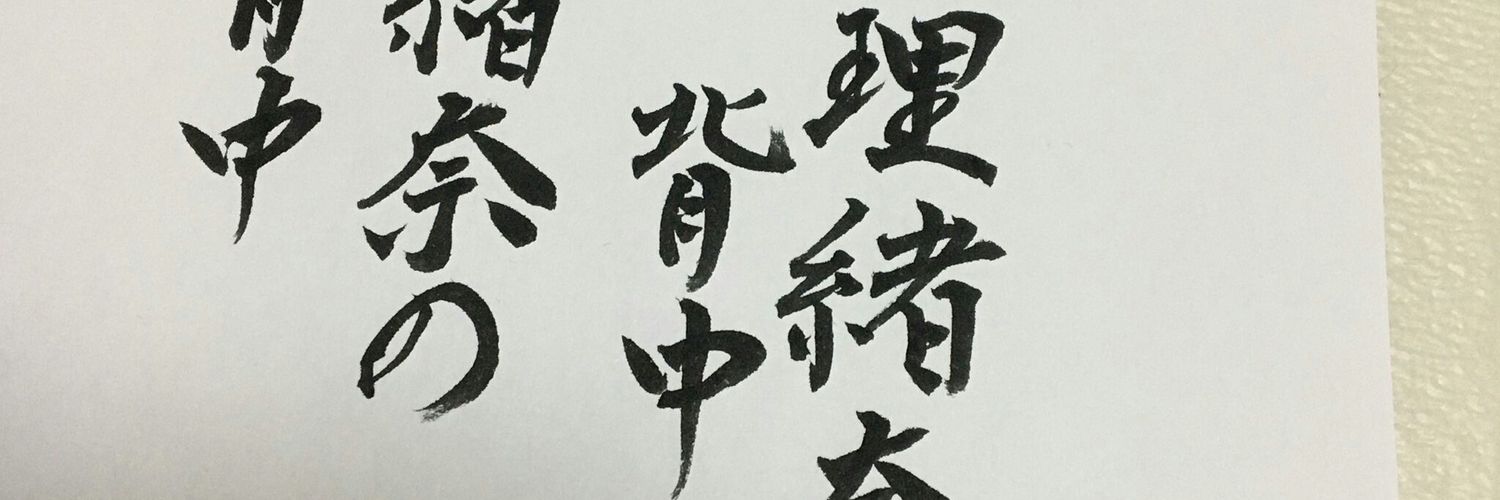 理緒奈
背中
緒奈の
背中